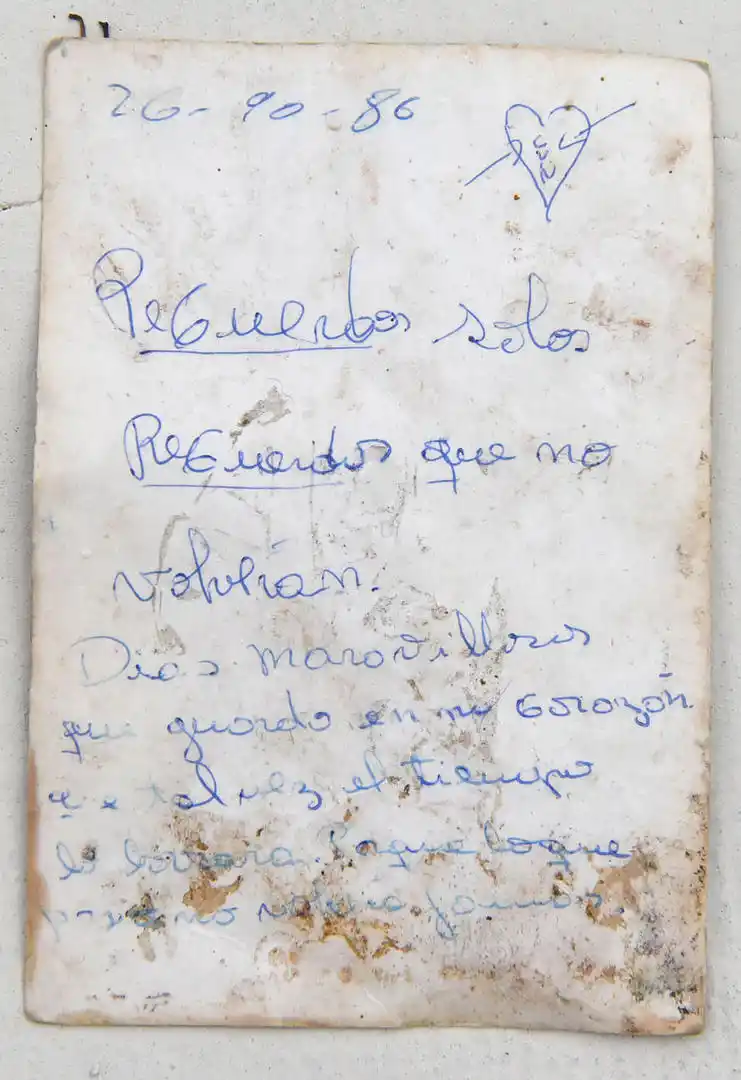 26-10-86
Recuerdos solos
Recuerdos que no
volverán.
Dias maravillosos
que guardo en mi corazón
que tal vez el tiempo
lo borrara. Porque lo que
paso no volverá jamas.